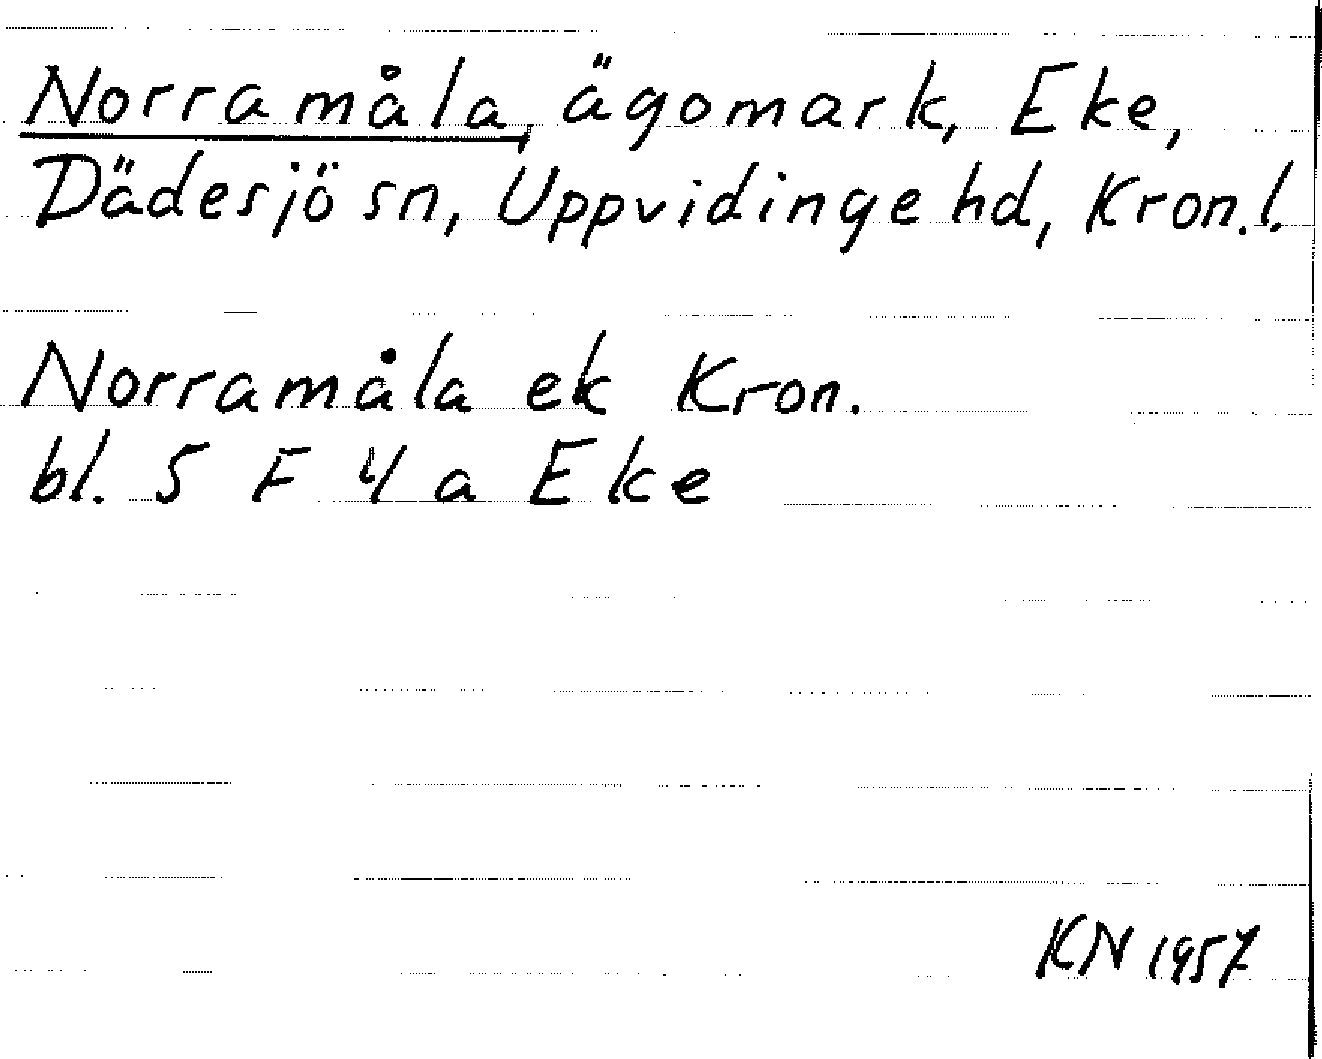 Norramåla, ägomark, Eke,
Dädesjö sn, Uppvidinge hd, Kron.l.
Norramåla ek Kron.
bl. 5 F 4 a Eke
KN 1957